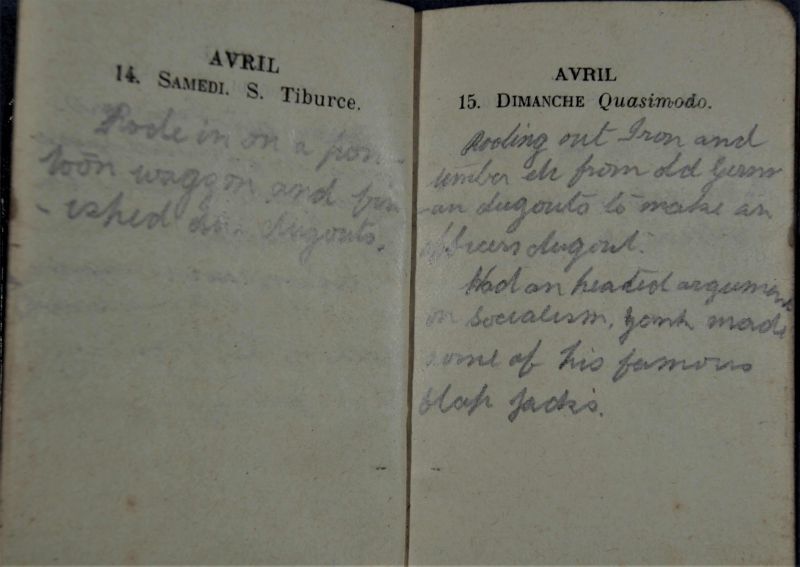 AVRIL
14. SAMEDI. S. Tiburce.
Rode in on a pon-
toon waggon and fin
-ished our dugouts.
AVRIL
15. DIMANCHE Quasimodo.
Rooling out Iron and
timber etc from old Germ
-an dugouts to make an
officers dugout.
Had an heated argument
on Socialism, Yank made
some of his famous
flap jacks.